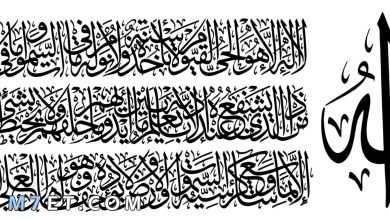 لله
لا إله إلا هو الحي القيوم لا تأخذه سنة ولا نوم له ما في السموات وما في
من ذا الذي يشفع عنده إلا بإذنه يعلم ما بين أيديهم وما خلفهم ولا يحيطون بشيء
إلا بما شاء وسع كرسيه السموات والأرض ولا يؤده حفظهما وهو العلي
M7ET.COM